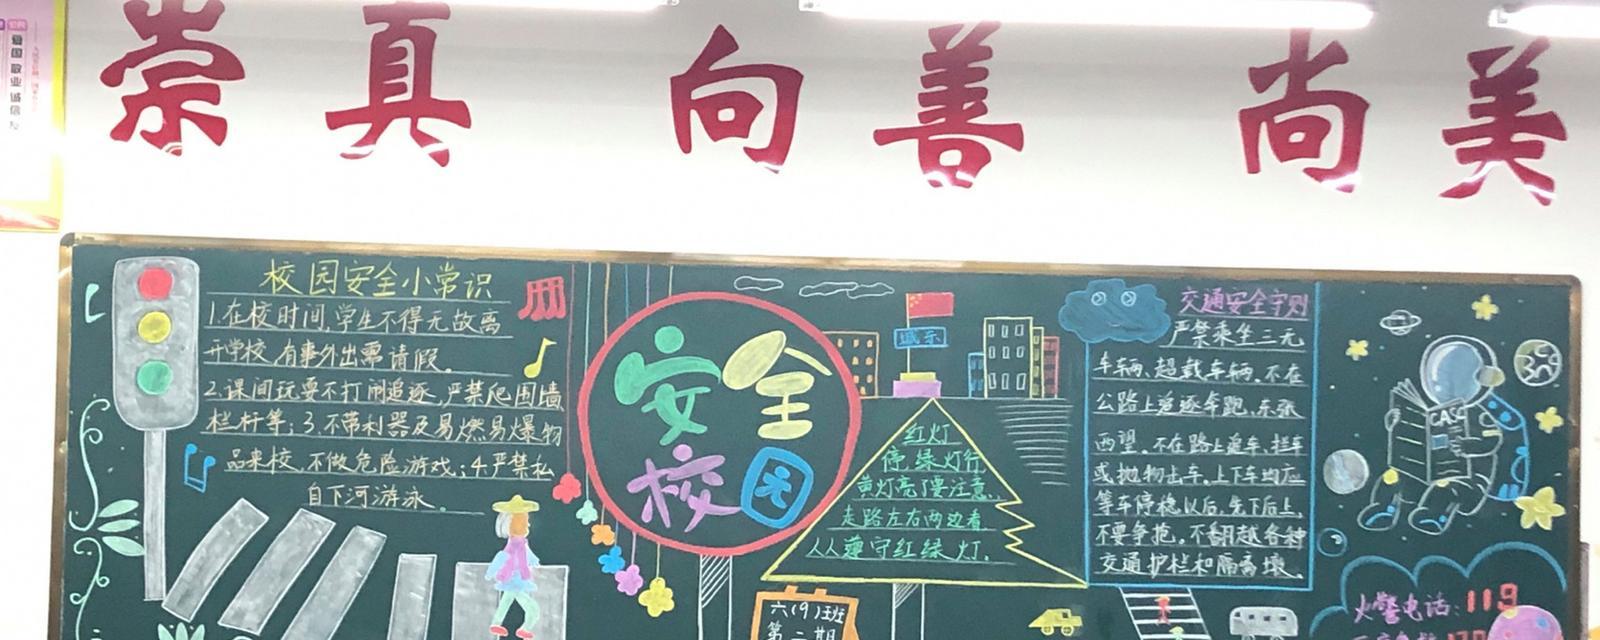 崇真 向善 尚美
爱国 敬业 诚信 友
校园安全小常识
1.在校时间,学生不得无故离
开学校,有事外出需请假。
2.课间玩耍不打闹追逐,严禁爬围墙
栏杆等;3.不带利器及易燃易爆物
品来校,不做危险游戏;4.严禁私
自下河游泳。
安全
校园
红灯
停绿灯行
黄灯亮了要注意,
走路左右两边看
人人遵守红绿灯.
六(9)班
第二期
交通安全守则
严禁乘坐三无
车辆、超载车辆.不在
公路上追逐奔跑.东张
西望.不在路上追车.拦车
或抛物击车.上下车均应
等车停稳以后,先下后上,
不要争抢.不翻越各种
交通护栏和隔离墩。
CASC
火警电话:119